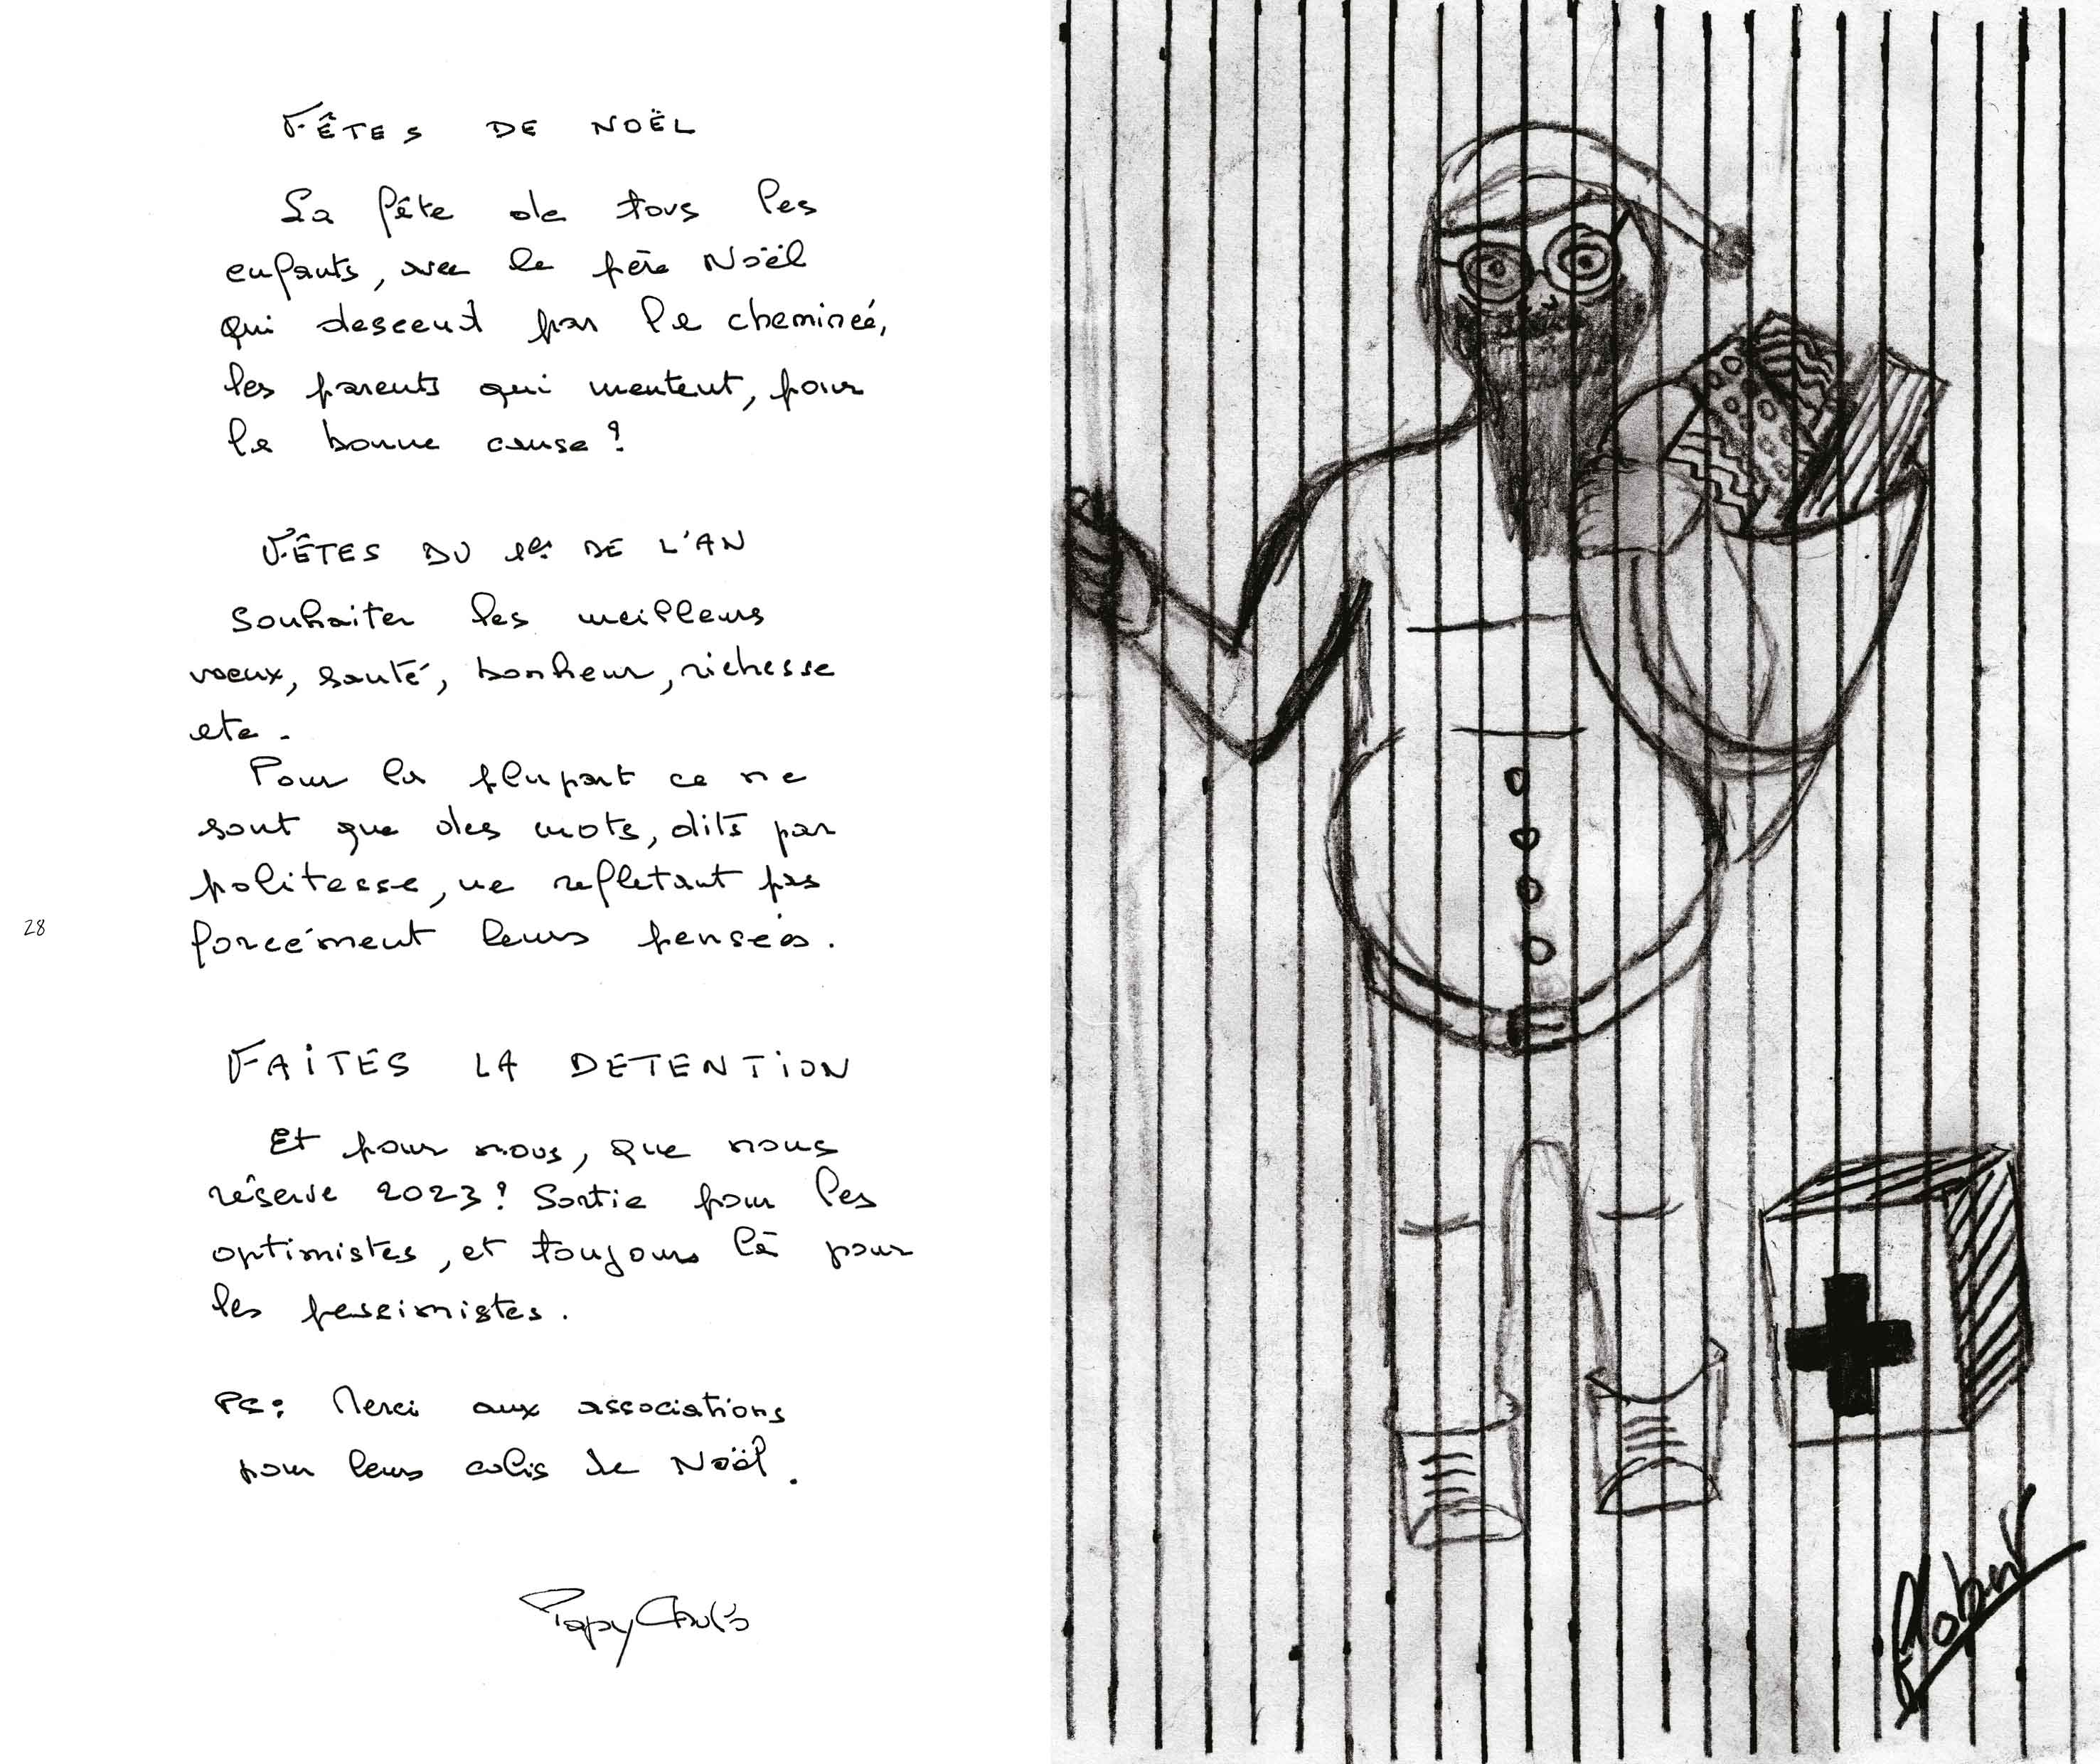 FÊTES DE NOËL
La fête de tous les
enfants, avec le père Noël
qui descend par la cheminée,
les parents qui mentent, pour
la bonne cause ?
FÊTES DU 1er DE L'AN
Souhaiter les meilleurs
voeux, santé, bonheur, richesse
etc.
Pour la plupart ce ne
sont que des mots, dits par
politesse, ne refletant pas
forcément leurs pensées.
28
FAITES LA DETENTION
Et pour nous, que nous
réserve 2023 ? Sortie pour les
optimistes, et toujours là pour
les pessimistes.
PS : Merci aux associations
pour leurs colis de Noël.
Papy